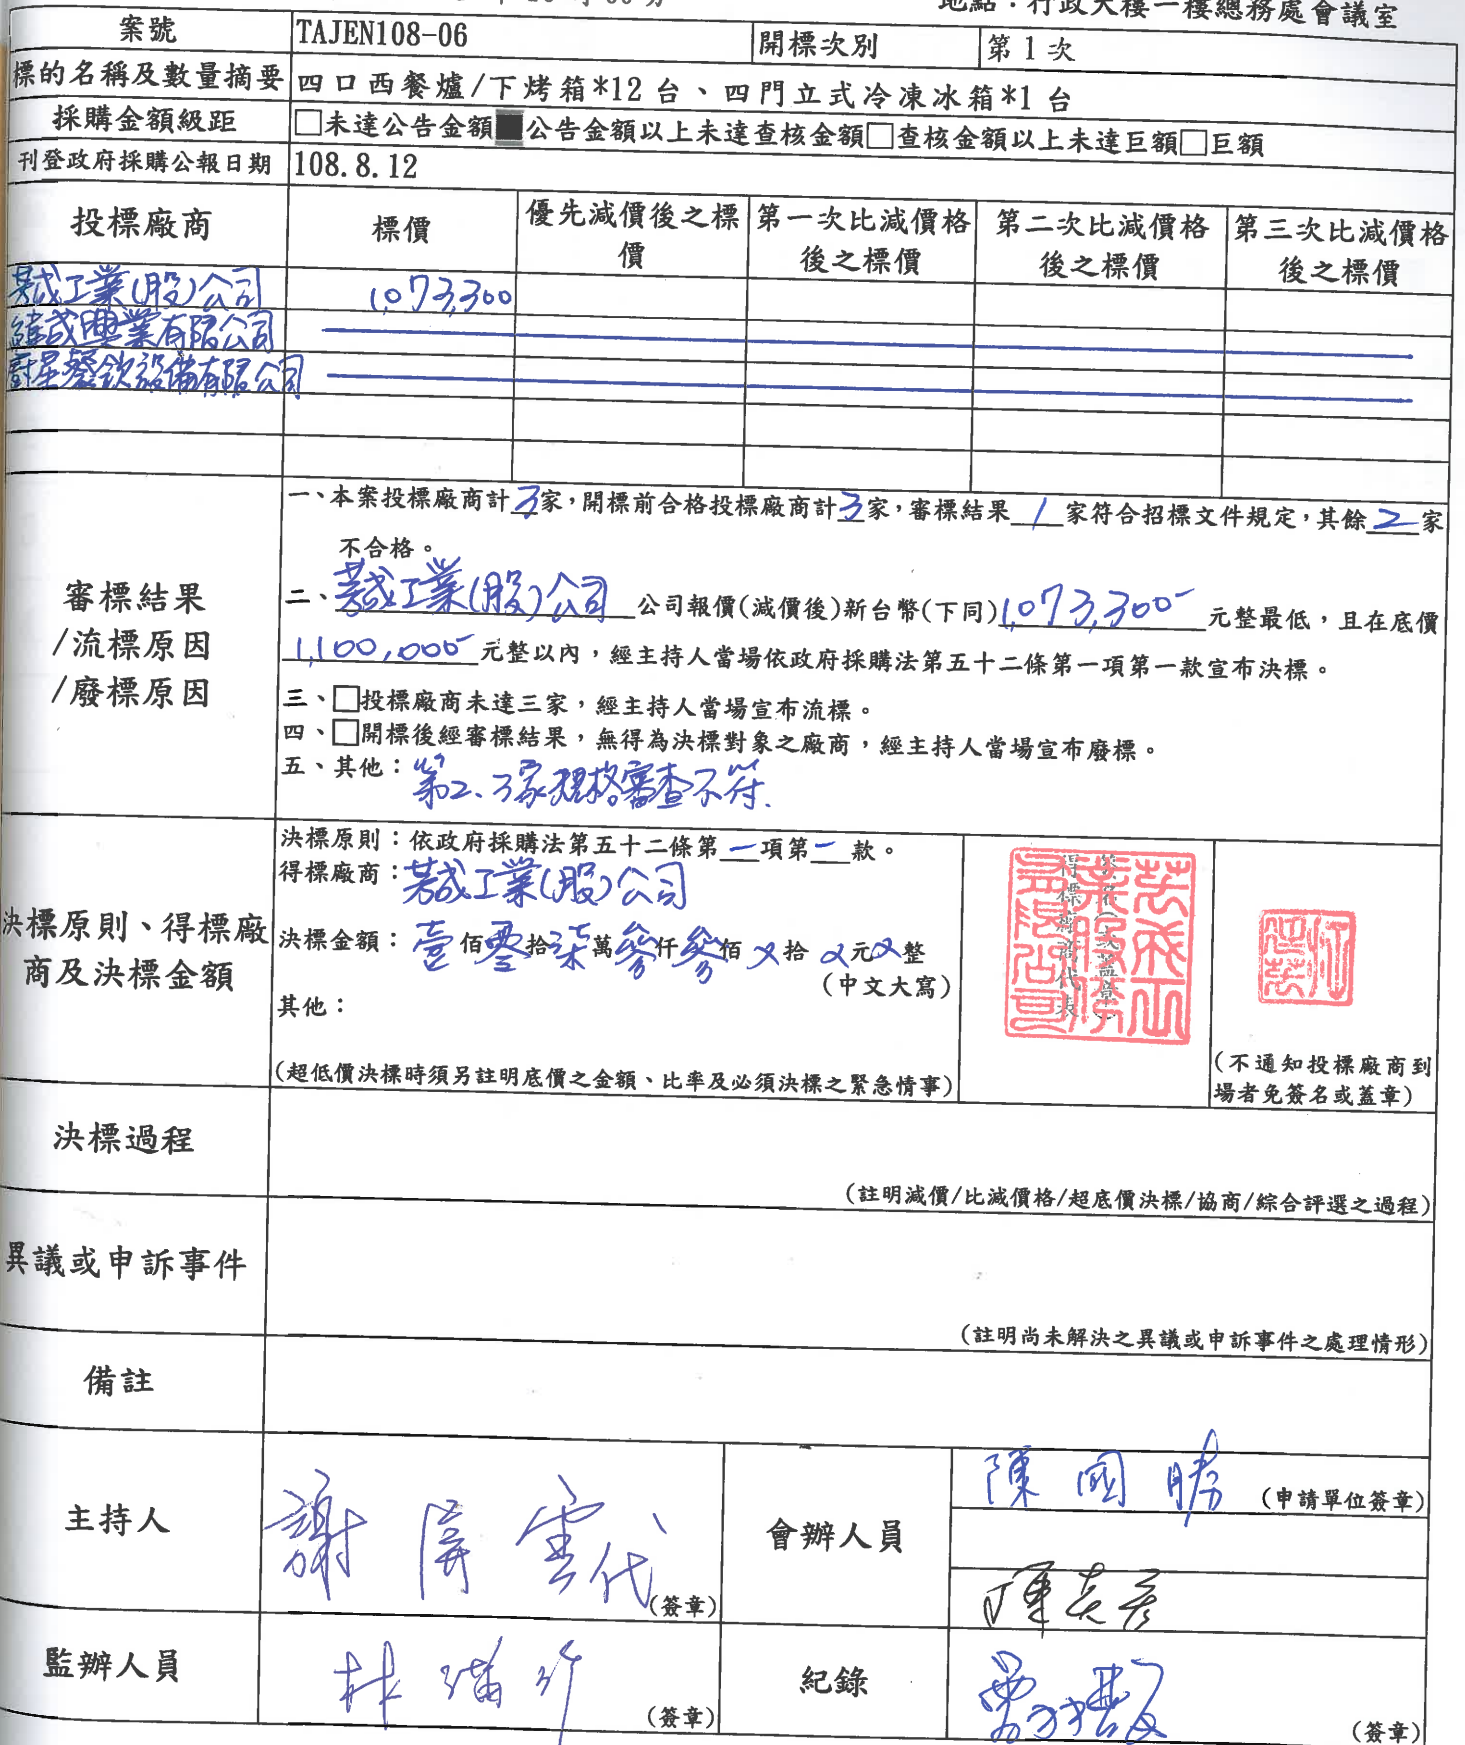 地點：行政大樓一樓總務處會議室
案號 TAJEN108-06 開標次別 第1次
標的名稱及數量摘要 四口西餐爐/下烤箱*12台、四門立式冷凍冰箱*1台
採購金額級距 □未達公告金額■公告金額以上未達查核金額□查核金額以上未達巨額□巨額
刊登政府採購公報日期 108.8.12
投標廠商 標價 優先減價後之標價 第一次比減價格後之標價 第二次比減價格後之標價 第三次比減價格後之標價
工業(股)公司 1,073,300
興業有限公司
餐飲設備有限公司
一、本案投標廠商計3家，開標前合格投標廠商計3家，審標結果1家符合招標文件規定，其餘2家
不合格。
審標結果
/流標原因
/廢標原因
二、工業(股)公司公司報價(減價後)新台幣(下同)1,073,300元整最低，且在底價
1,100,000元整以內，經主持人當場依政府採購法第五十二條第一項第一款宣布決標。
三、□投標廠商未達三家，經主持人當場宣布流標。
四、□開標後經審標結果，無得為決標對象之廠商，經主持人當場宣布廢標。
五、其他：第2、3家規格審查不符.
決標原則、得標廠
商及決標金額
決標原則：依政府採購法第五十二條第一項第一款。
得標廠商：工業(股)公司
決標金額：壹佰零拾柒萬參仟參佰ㄨ拾ㄨ元ㄨ整
(中文大寫)
其他：
(超低價決標時須另註明底價之金額、比率及必須決標之緊急情事)
得標廠商代表
簽名(或蓋章)
(不通知投標廠商到
場者免簽名或蓋章)
決標過程
(註明減價/比減價格/超底價決標/協商/綜合評選之過程)
異議或申訴事件
(註明尚未解決之異議或申訴事件之處理情形)
備註
主持人 謝屏雲代 (簽章) 會辦人員 陳國勝 (申請單位簽章)
監辦人員 林 (簽章) 紀錄 (簽章)